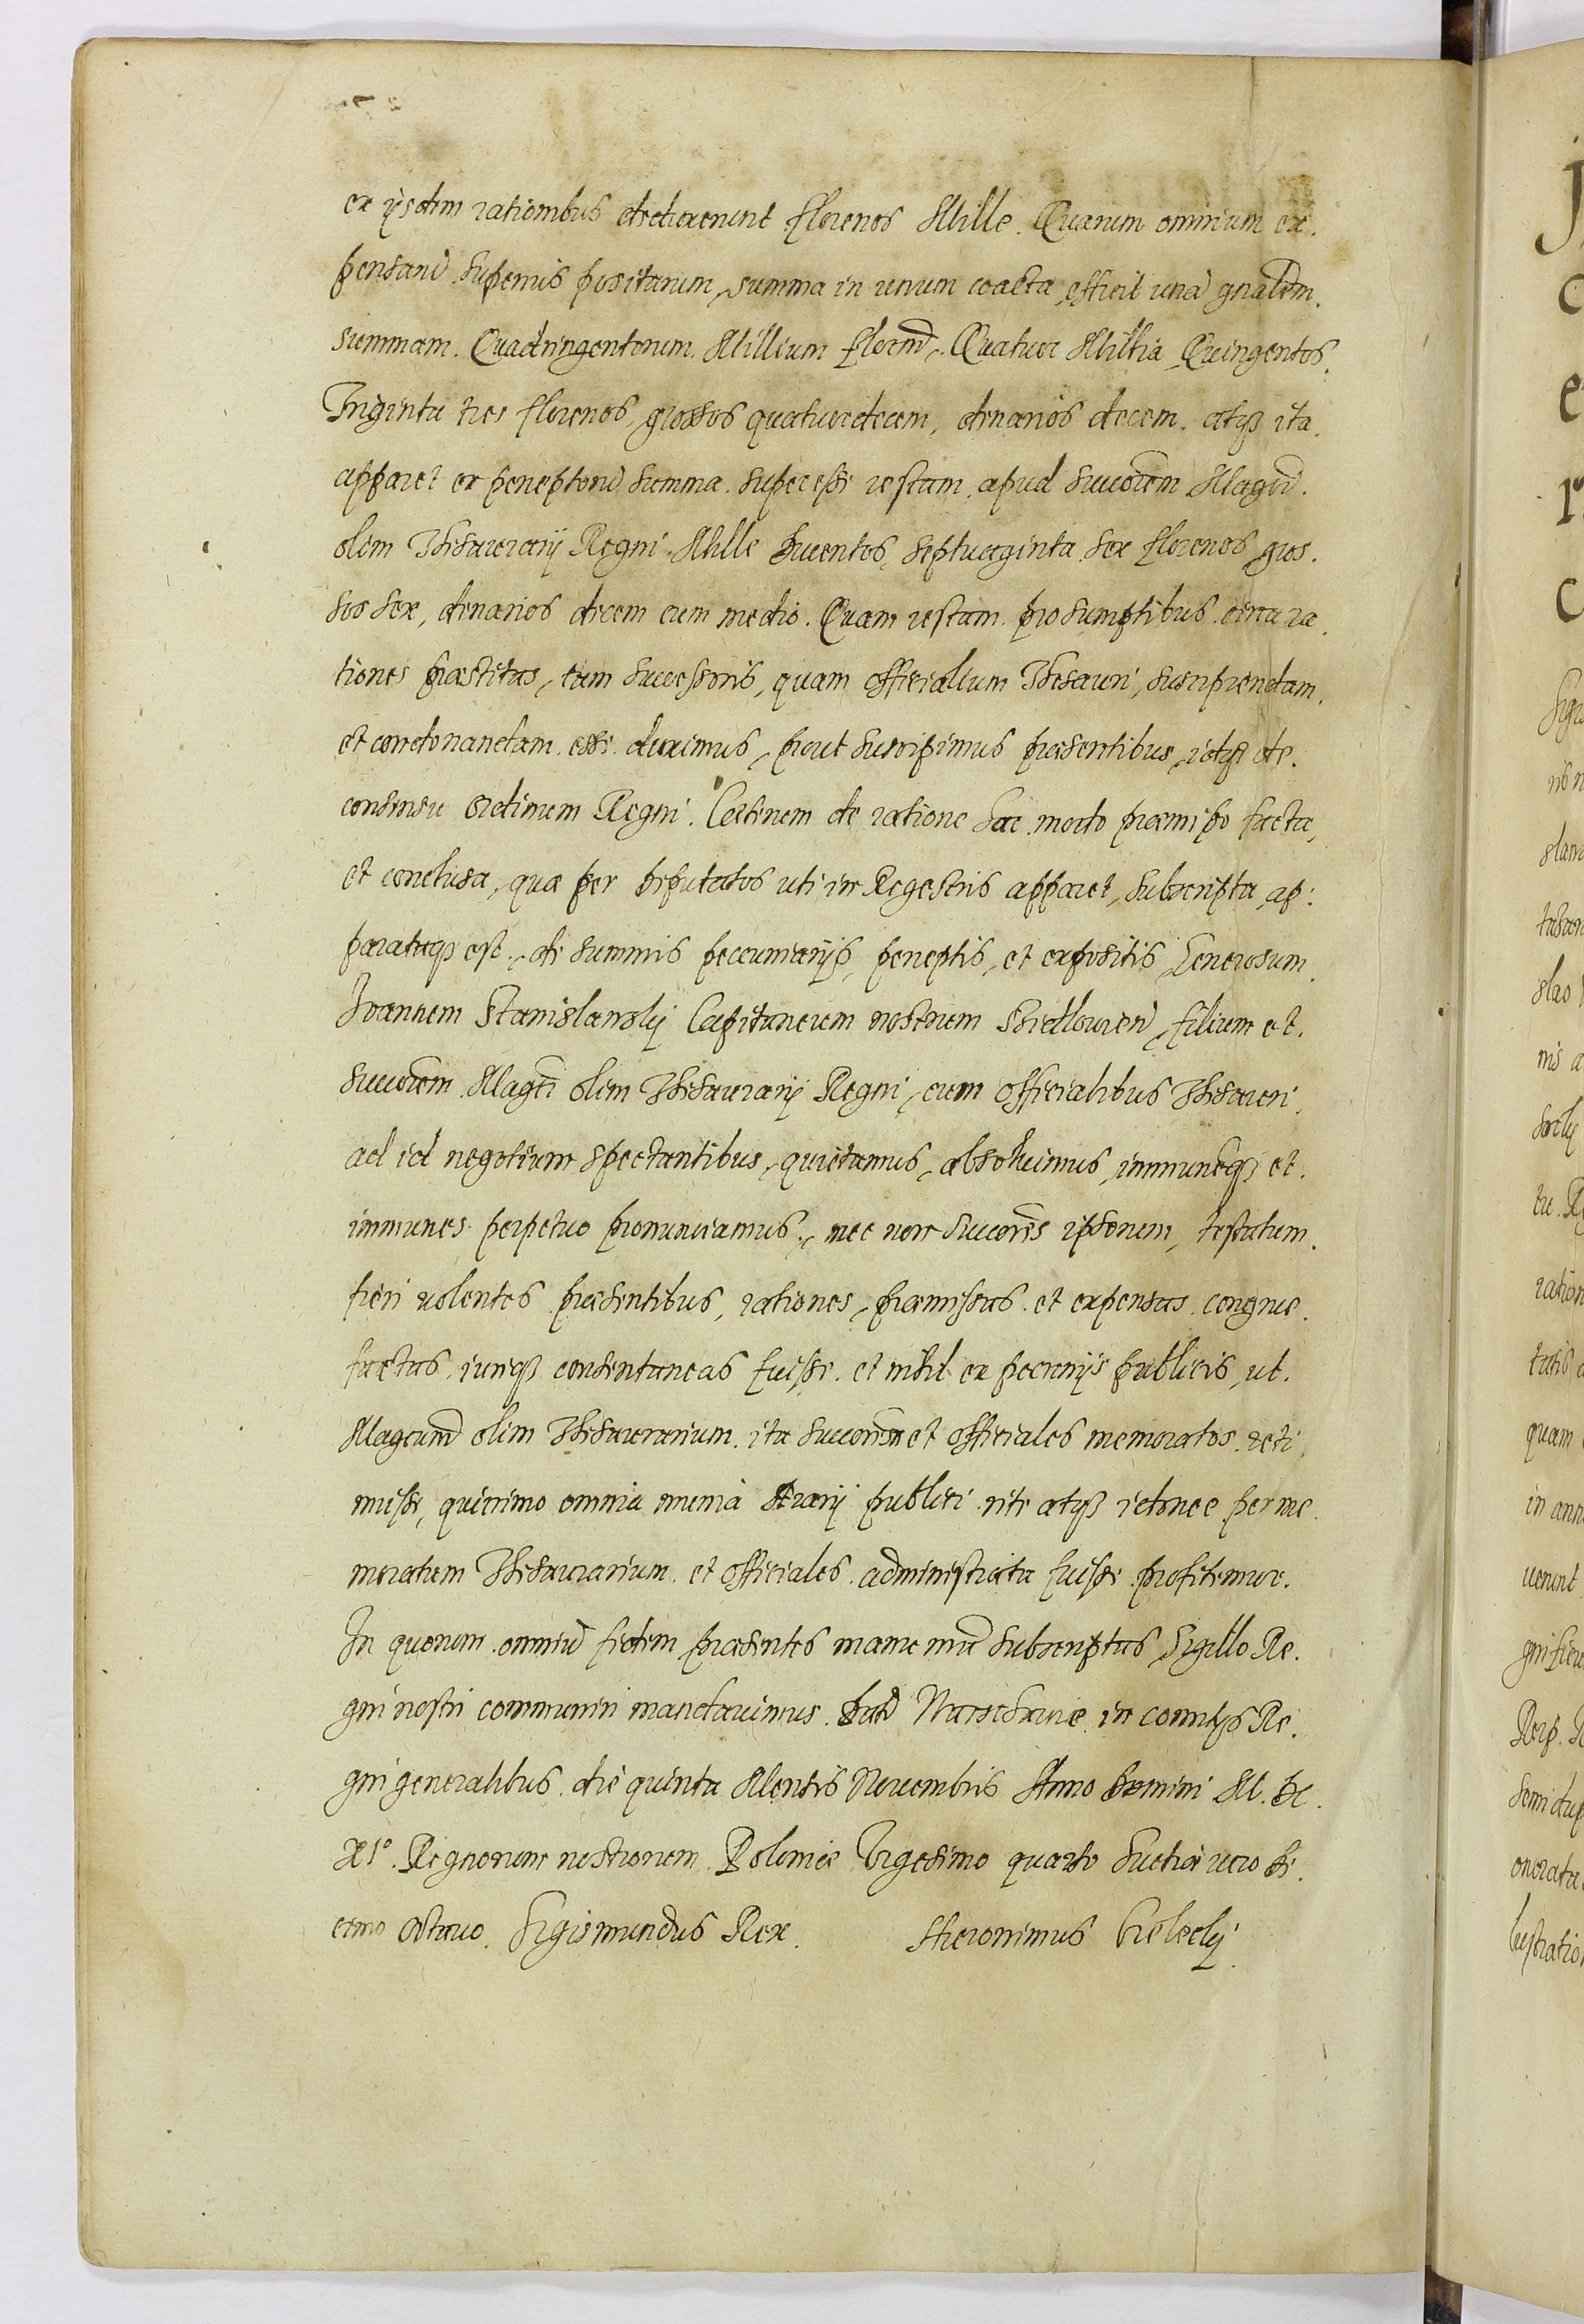 ex ijsdem rationibus deduxerunt florenos Mille. Quarum omnium ex.
pensarū superius positarum, summa in unum coacta, efficit unā gnalem.
summam. Quadringentorum. Millium florenō. Quatuor Millia, Quingentos.
Triginta tres florenos, grossos quatuordecem, denarios decem. atqȝ ita.
apparet ex perceptorū summa. superesse restam. apud Succorem Magcī.
olim Thesaurarij Regni. Mille Ducentos, septuaginta sex florenos, gros.
sos sex, denarios decem cum medio. Quam restam. pro sumptibus. circa ra.
tiones præstitas, tam Successoris, quam officialium Thesauri, suscipiendam.
et condonandam. esse. duximus, prout suscipimus præsentibus, idqȝ de.
consensu ordinum Regni. Cæterum de ratione hac. modo præmisso facta,
et conclusa, quæ per Deputatos uti in Regestris apparet, subscripta, ap:
parataqȝ est. de summis pecuniarijs, perceptis, et expositis Generosum
Ioannem Stanislawsky Capitaneum nostrum, filium et.
Succorem. Magci olim Thesaurarij Regni, cum officialibus Thesauri.
ad id negotium spectantibus, quietamus, absoluimus, immunesqȝ et.
immunes perpetuo pronunciamus. nec non Succores ipsorum, testatum.
fieri volentes præsentibus, rationes, præmissas. et expensas. congrue.
factas, iuriqȝ consentaneas fuisse. et nihil ex pecunijs publicis, ut.
Magcum olim Thesaurarium. ita Succorem et officiales memoratos. reti
nuisse, quinimo omnia munia Ærarij publici. rite atqȝ idonee per me.
moratum Thesaurarium. et officiales. administrata fuisse. profitemur.
In quorum. omniū fidem præsentes manu nrā subscriptas Sigillo Re.
gni nostri communiri mandauimus. Datū Warschauiæ. in comitijs Re.
gni generalibus. die quinta Mensis Nouembris Anno Domini M. DC.
XIº. Regnorum nostrorum. Poloniæ Vigesimo quarto Suetiæ uero De.
cimo octauo. Sigismundus Rex. Hieronimus Cielecky